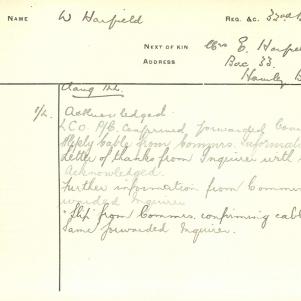 NAME W Harfield REG. &C. 32nd B
NEXT OF KIN Mrs E. Harf
ADDRESS Box 33.
Hamley B
Acknowledged.
L.C.O. confirmed forwarded Com
Reply cable from Commrs. Informat
Letter of thanks from Inquirer
Acknowledged.
Further information from Commr
warded Inquirer
Slip from Commrs. confirming cabl
same forwarded Inquirer.